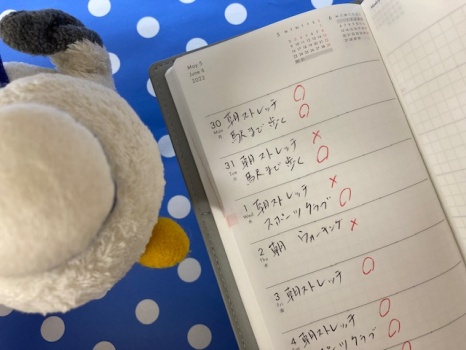 May 5
June 6
2022
30 朝ストレッチ ○
Mon 駅まで歩く ○
31 朝ストレッチ ×
Tue 駅まで歩く ○
1 朝ストレッチ ×
Wed スポーツクラブ ○
2 朝 ウォーキング ×
Thu
3 朝ストレッチ ○
Fri
4 朝ストレッチ ○
スポーツクラブ ○